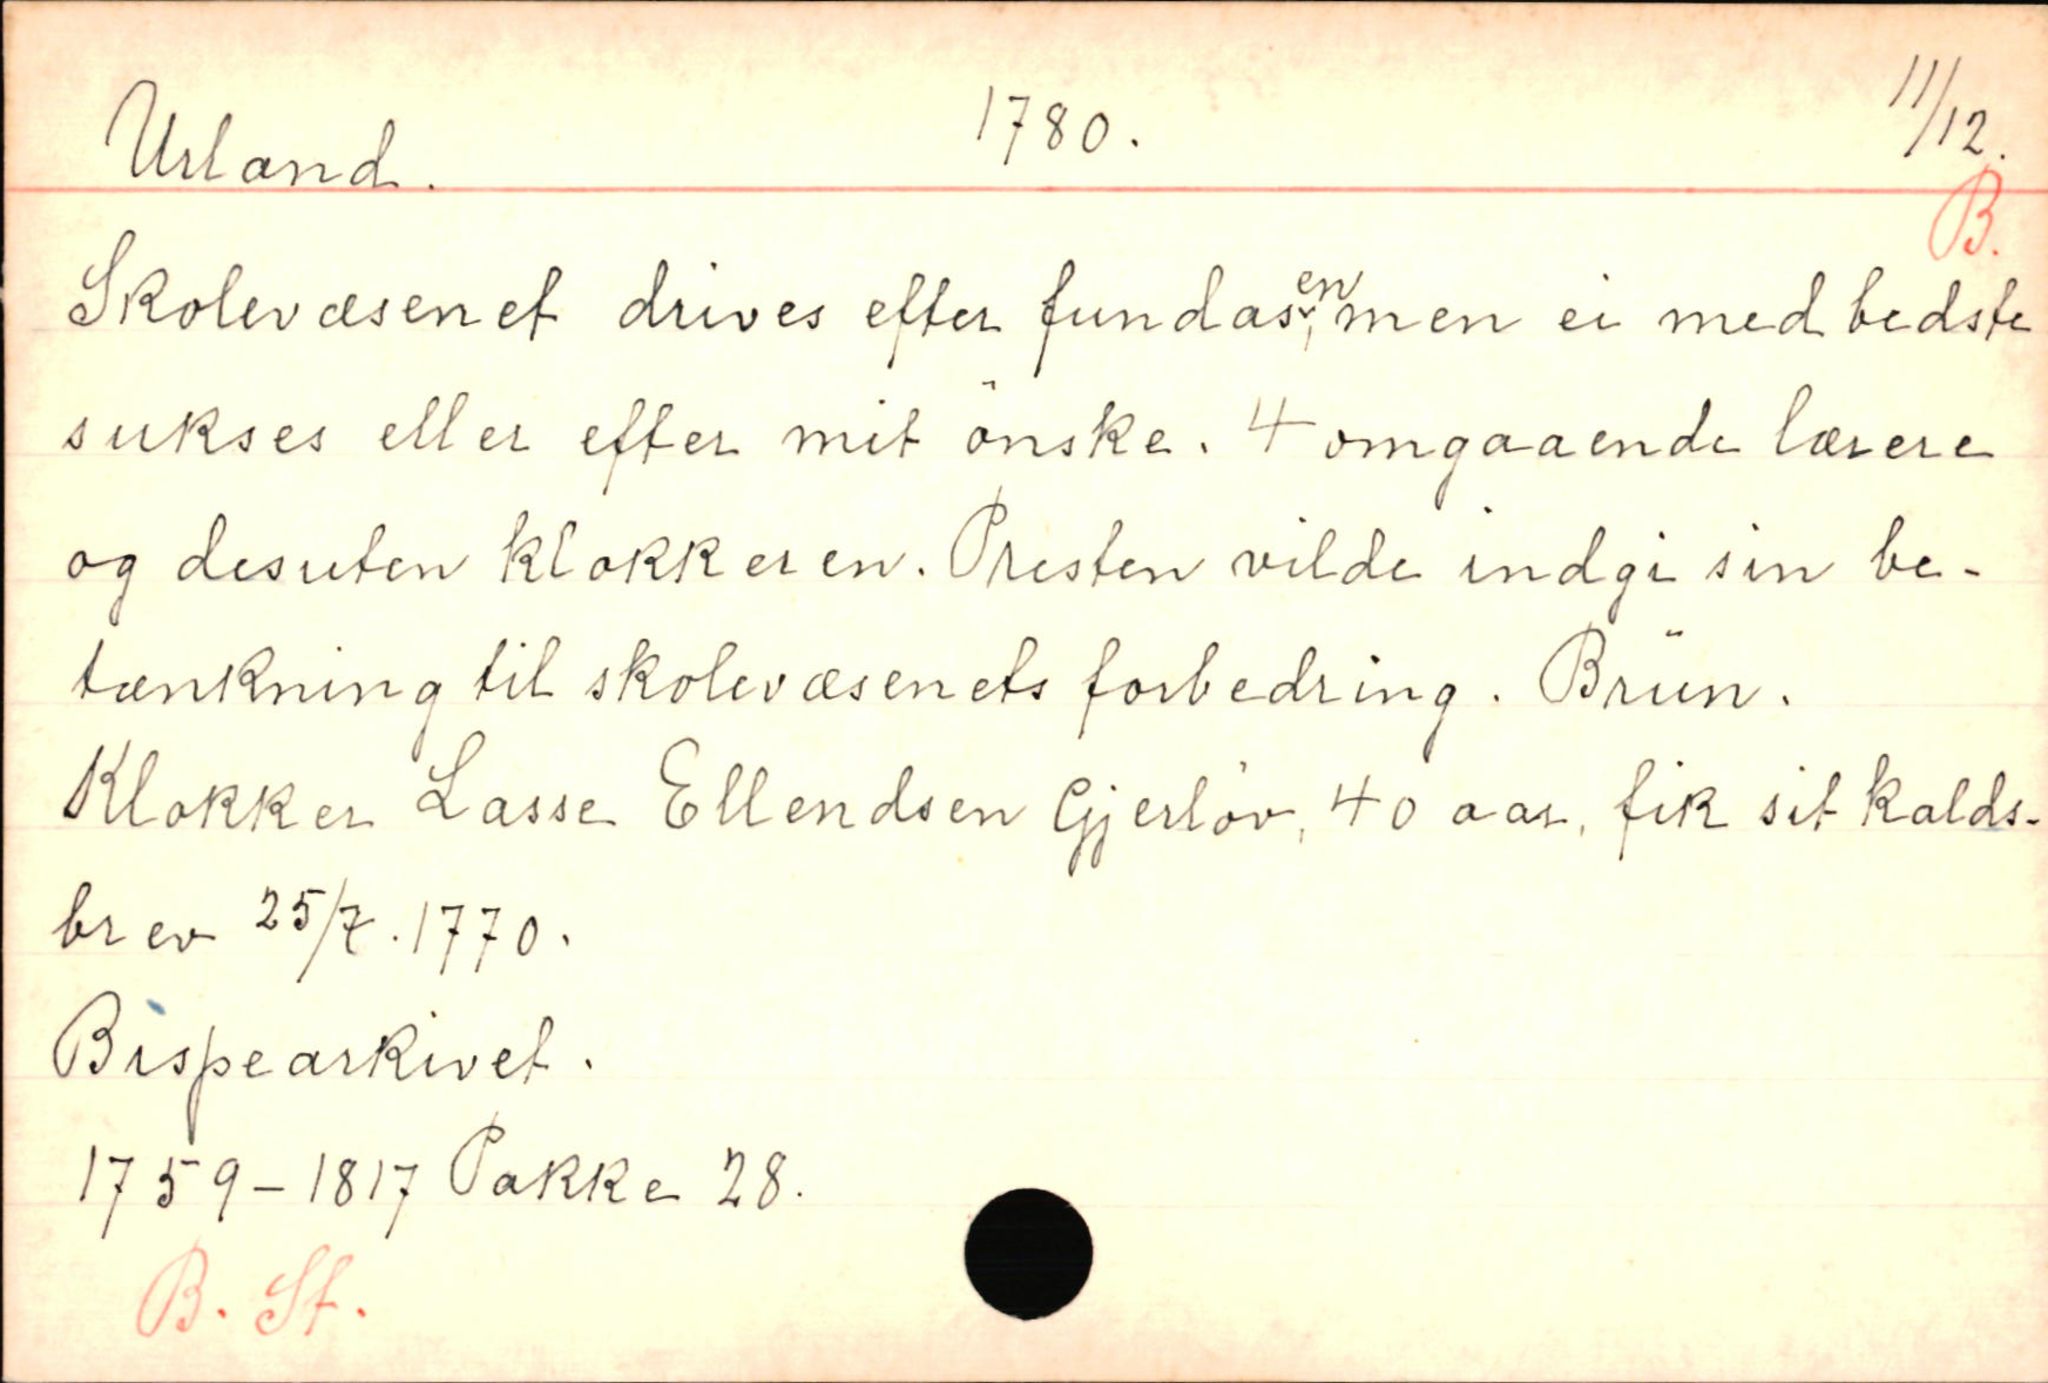 Urland. 1780. 11/12.
B.
Skolevæsenet drives efter fundasen, men ei med bedste
sukses eller efter mit önske. 4 omgaaende lærere
og desuten klokkeren. Presten vilde indgi sin be-
tænkning til skolevæsenets forbedring. Brün.
Klokker Lasse Ellendsen Gjerlöv, 40 aar, fik sit kalds-
brev 25/7. 1770.
Bispearkivet.
1759-1817 Pakke 28.
B. St.